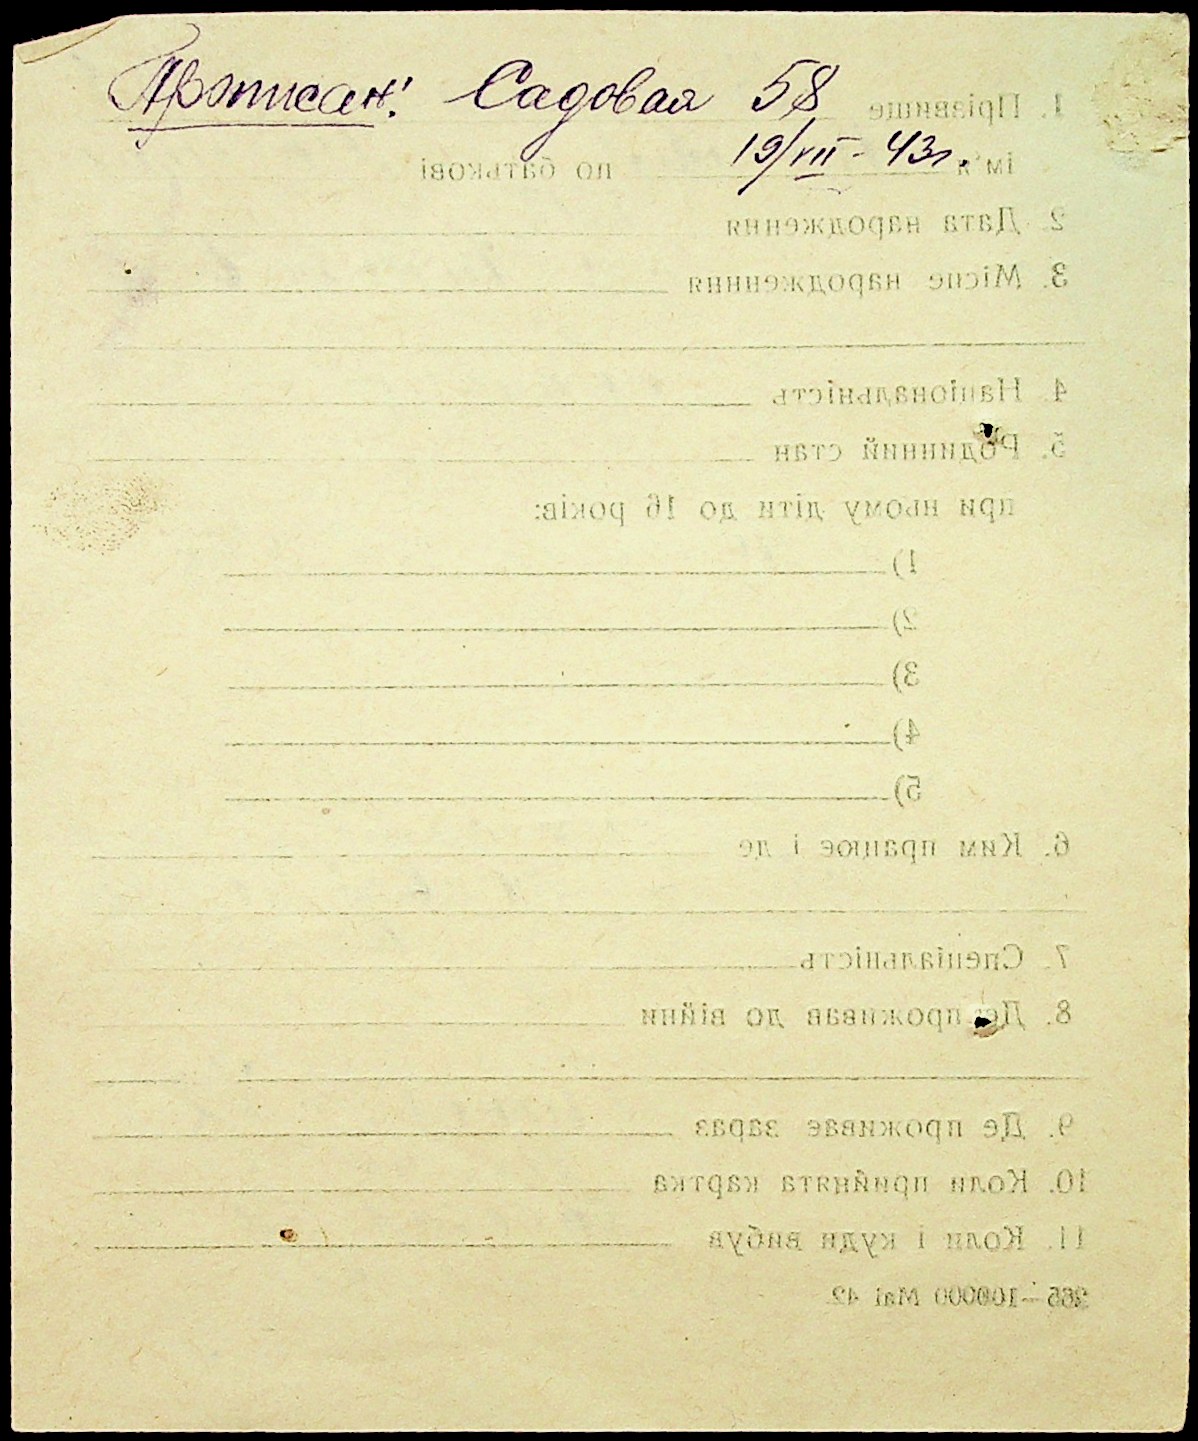 Прописан: Садовая 58
19/VII - 43г.
1. Прізвище
ім'я по батькові
2. Дата народження
3. Місце народженння
4. Національність
5. Родинний стан
при ньому діти до 16 років:
1)
2)
3)
4)
5)
6. Ким працює і де
7. Спеціальність
8. Де проживав до війни
9. Де проживає зараз
10. Коли прийнята картка
11. Коли і куди вибув
365—100000 Mai 42